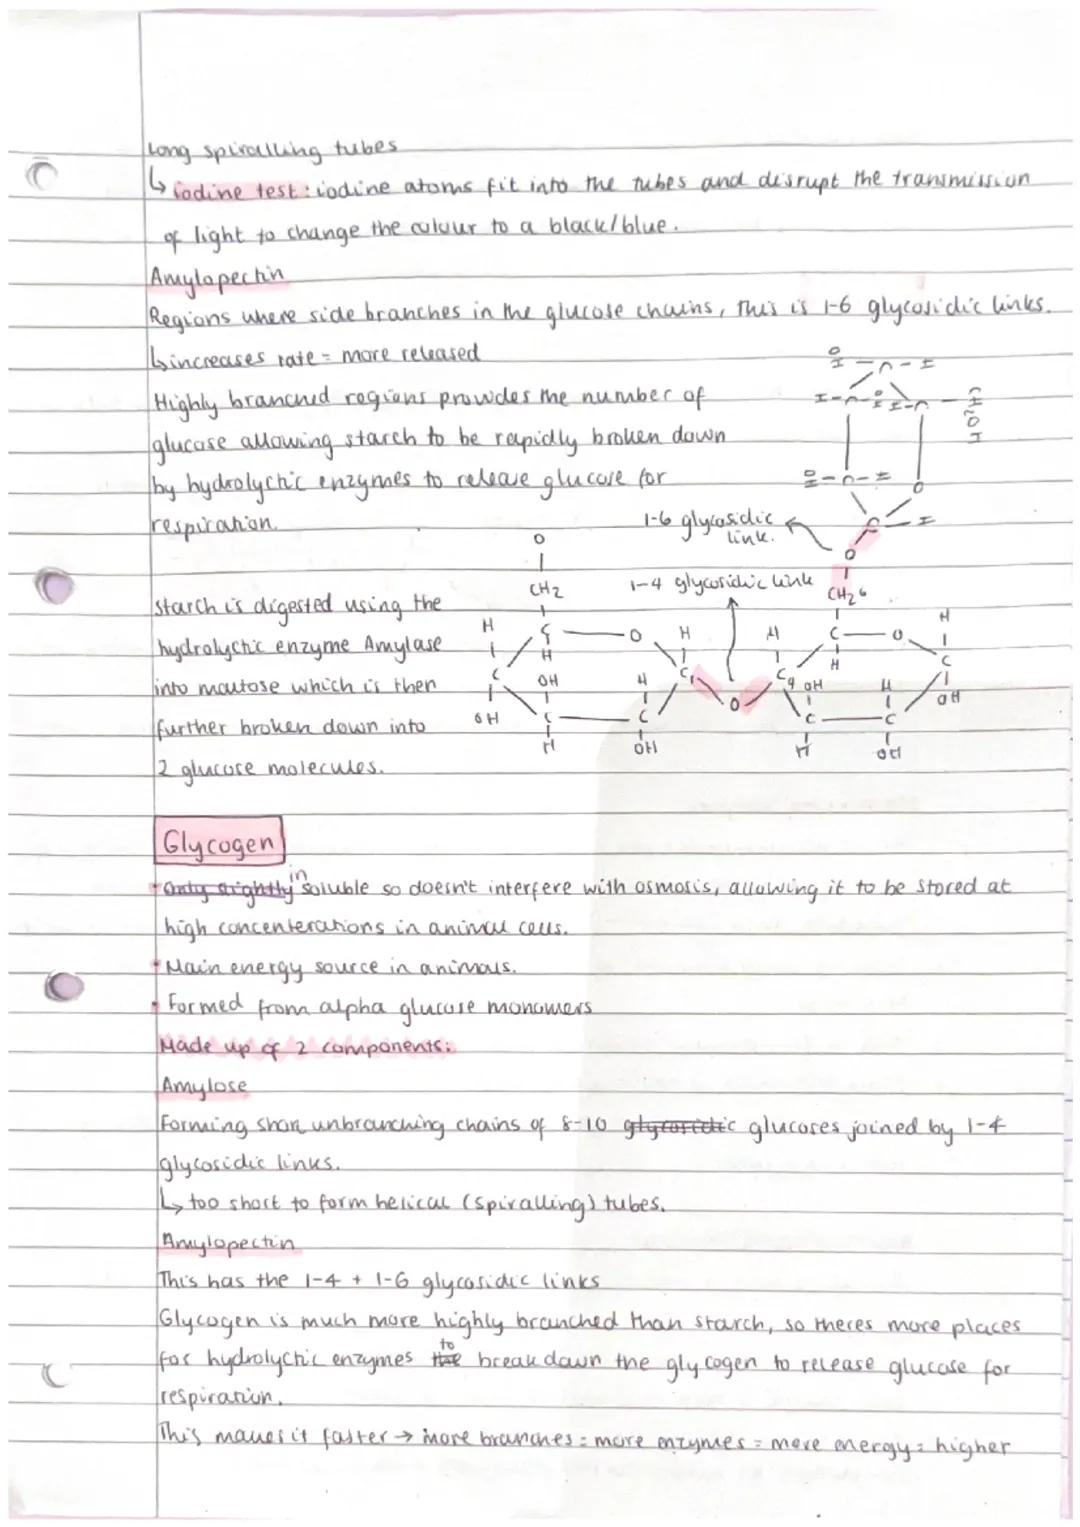 Long spiralling tubes
↳ iodine test: iodine atoms fit into the tubes and disrupt the transmission
of light to change the colour to a black/blue.
Amylopectin
Regions where side branches in the glucose chains, this is 1-6 glycosidic links.
↳ increases rate = more released
Highly branched regions provides the number of
glucose allowing starch to be rapidly broken down
by hydrolychic enzymes to release glucose for
respiration.
1-6 glycosidic
link.
1-4 glycosidic link
starch is digested using the
hydrolychic enzyme Amylase
into maltose which is then
further broken down into
2 glucose molecules.
O
CH2
H C O H
H
OH H C1
C
OH C C
H OH
O
H C O H
H
C4 OH H C
C C OH
H OH
CH2 6
O
C H
OH C H
O
H C OH H C CH2OH
OH C H
Glycogen
Only slightly in soluble so doesn't interfere with osmosis, allowing it to be stored at
high concenterations in animal cells.
Main energy source in animals.
Formed from alpha glucose monomers
Made up of 2 components:
Amylose
Forming short unbranching chains of 8-10 glycosidic glucoses joined by 1-4
glycosidic links.
↳ too short to form helical (spiralling) tubes.
Amylopectin
This has the 1-4 + 1-6 glycosidic links
Glycogen is much more highly branched than starch, so theres more places
for hydrolychic enzymes the to break down the glycogen to release glucose for
respiration.
This makes it faster → more branches = more enzymes = more energy = higher